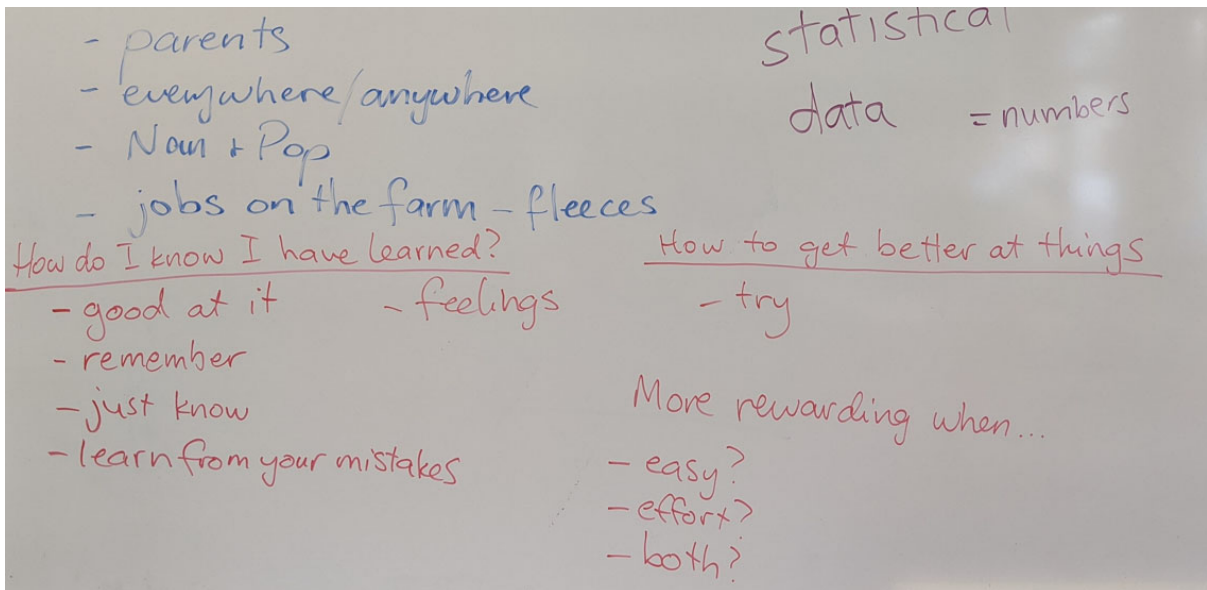 - parents
- everywhere/anywhere
- Nan + Pop
- jobs on the farm - fleeces
statistical
data = numbers
How do I know I have learned?
- good at it - feelings
- remember
- just know
- learn from your mistakes
How to get better at things
- try
More rewarding when...
- easy?
- effort?
- both?